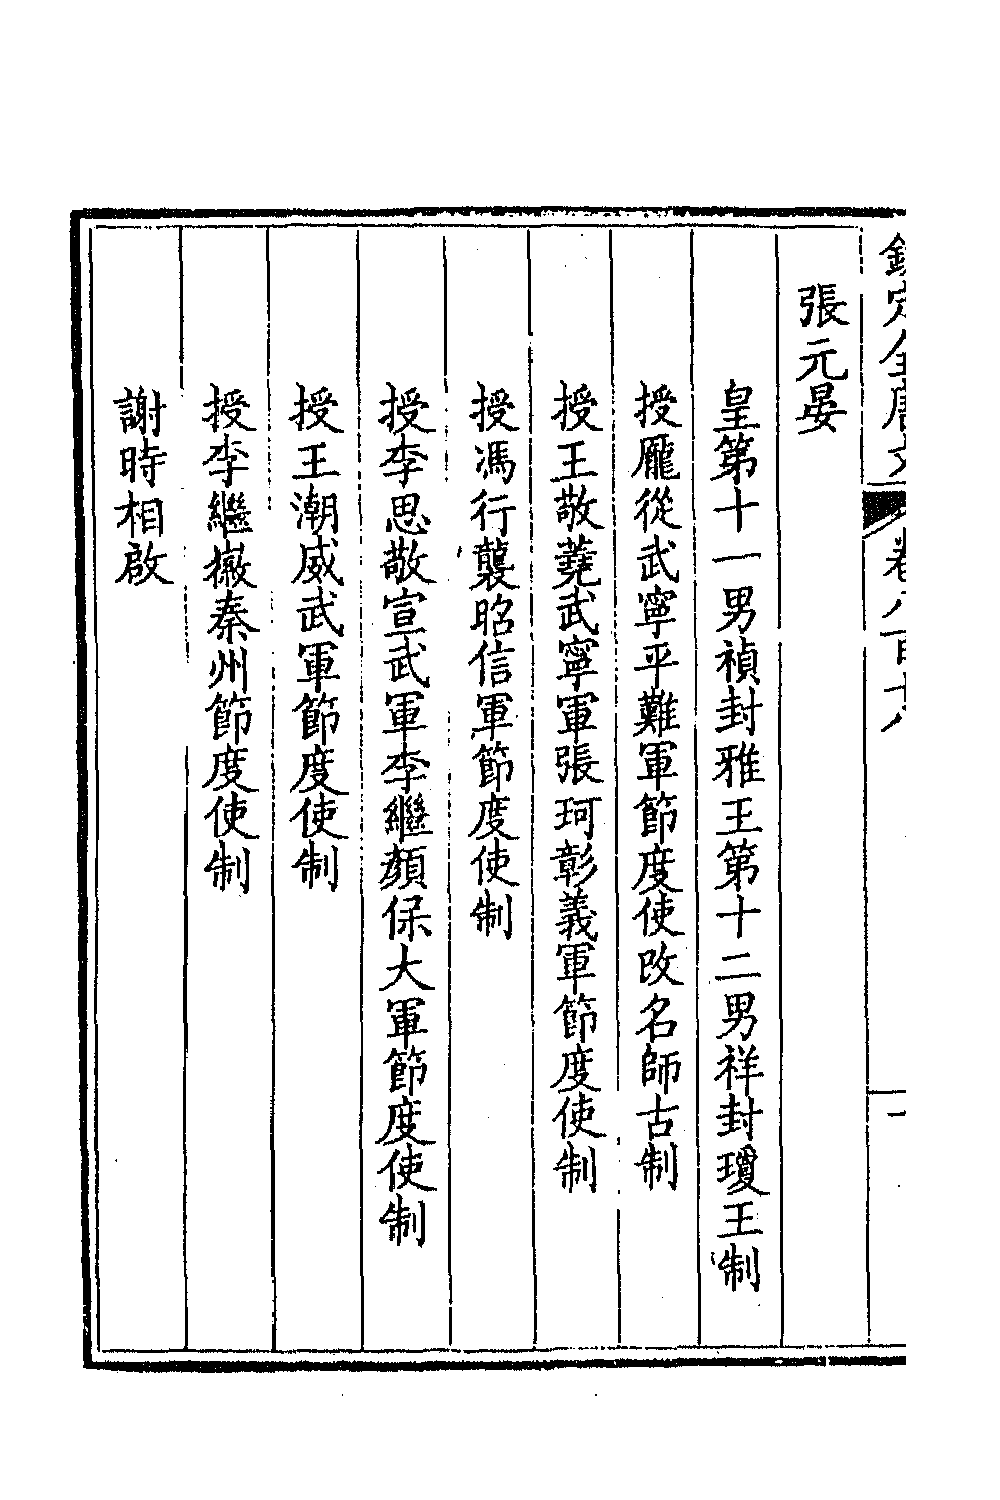 欽定全唐文 卷八百十八 一
張元晏
皇第十一男禎封雅王第十二男祥封瓊王制
授龐從武寧平難軍節度使改名師古制
授王敬蕘武寧軍張珂彰義軍節度使制
授馮行襲昭信軍節度使制
授李思敬宣武軍李繼顏保大軍節度使制
授王潮威武軍節度使制
授李繼徽秦州節度使制
謝時相啟